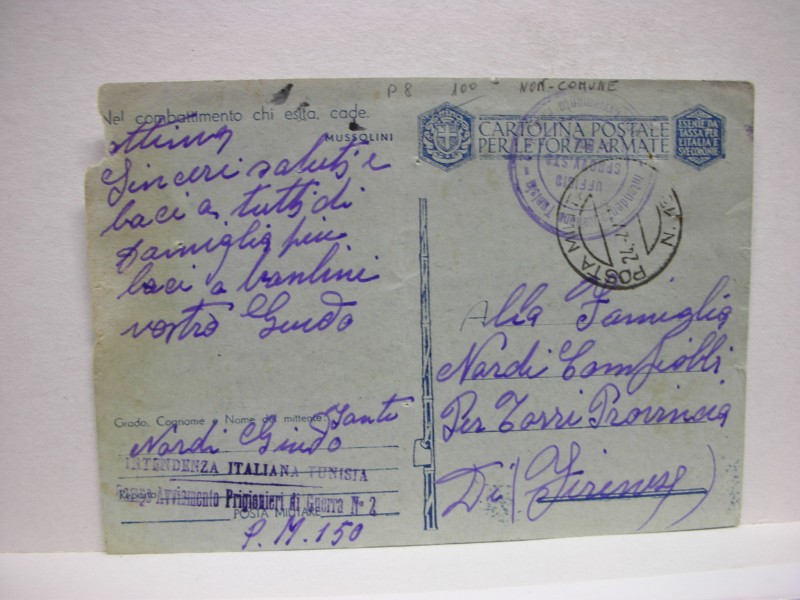 P 8 100 - NON-COMUNE
Nel combattimento chi esita, cade.
MUSSOLINI
CARTOLINA POSTALE
PER LE FORZE ARMATE
ESENTE DA
TASSA PER
L'ITALIA E
SVE COLONIE
UFFICIO
Tunisia
POSTA MI N.
ottima
Sinceri saluti e
baci a tutti di
famiglia piu
baci a bambini
vostro Guido
Grado, Cognome e Nome del mittente: Fante
Nardi Guido
INTENDENZA ITALIANA TUNISIA
Reparto Avviamento Prigionieri di Guerra N° 2
POSTA MILITARE
P. M. 150
Alla Famiglia
Nardi
Per Torri Provincia
Di (Firenze)